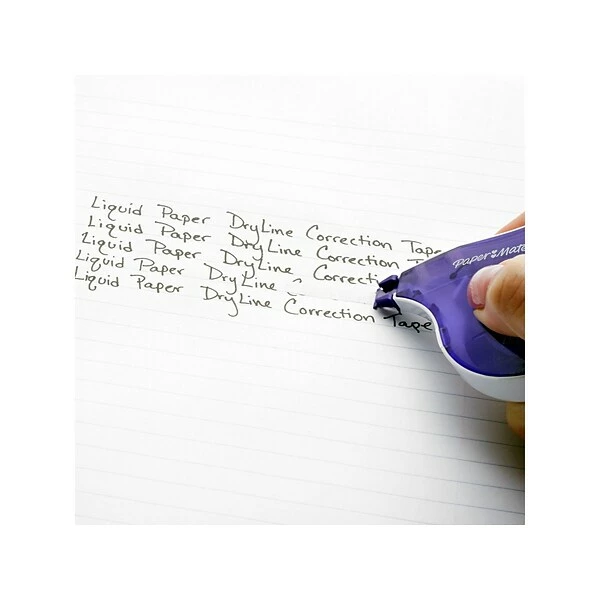 Liquid Paper DryLine Correction Tape
Liquid Paper DryLine Correction
Liquid Paper DryLine
Liquid Paper DryLine
Liquid Paper DryLine Correction Tape
Paper Mate